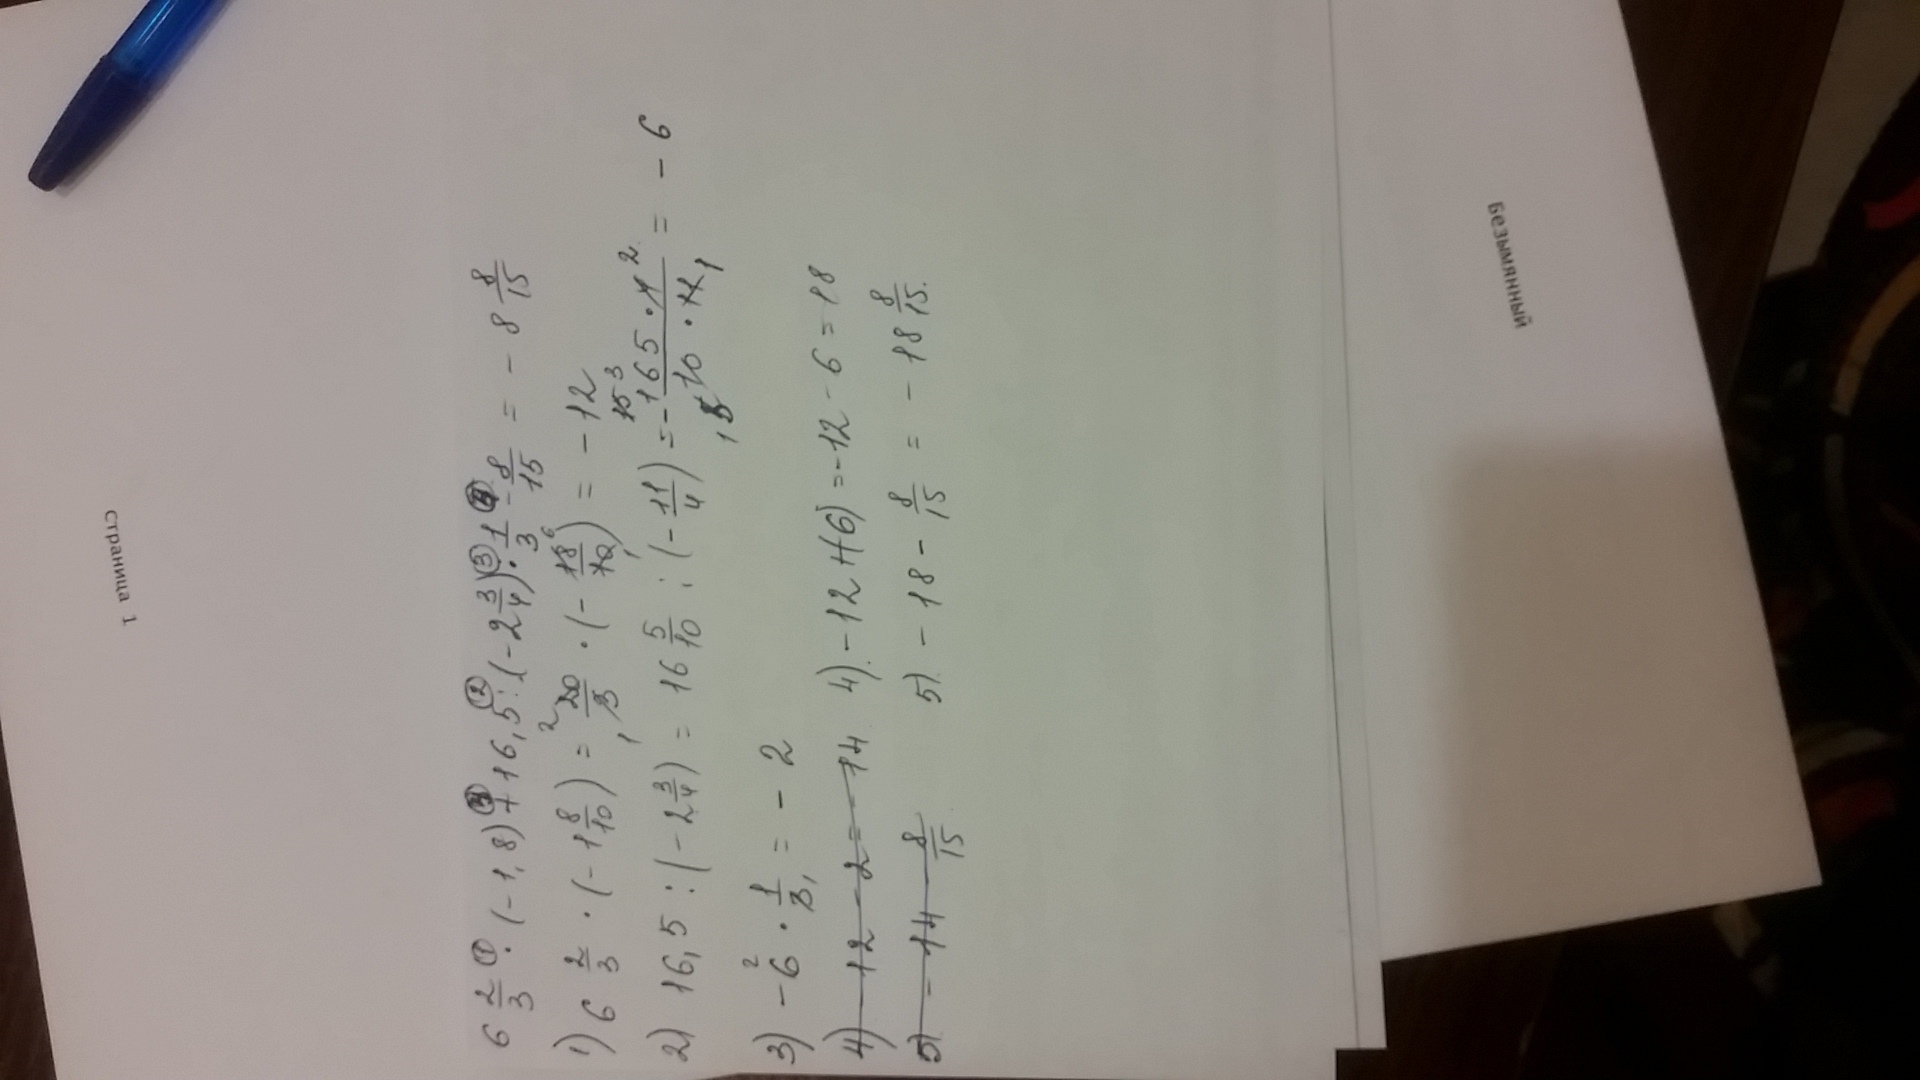 Страница 1
6 2/3 ① · (-1,8) + 16,5 ② : (-2 3/4) ③ · 1/3 - 8/15 = - 8 8/15
1) 6 2/3 · (-1 8/10) = 20/3 · (- 18/10) = - 12
2) 16,5 : (- 2 3/4) = 16 5/10 : (- 11/4) = - 165 · 4/10 · 11 = - 6
3) - 6 · 1/3 = - 2
4) - 12 - 2 = - 14 4) - 12 + (6) = - 12 - 6 = 18
5) - 14 - 8/15 5) - 18 - 8/15 = - 18 8/15
Безымянный